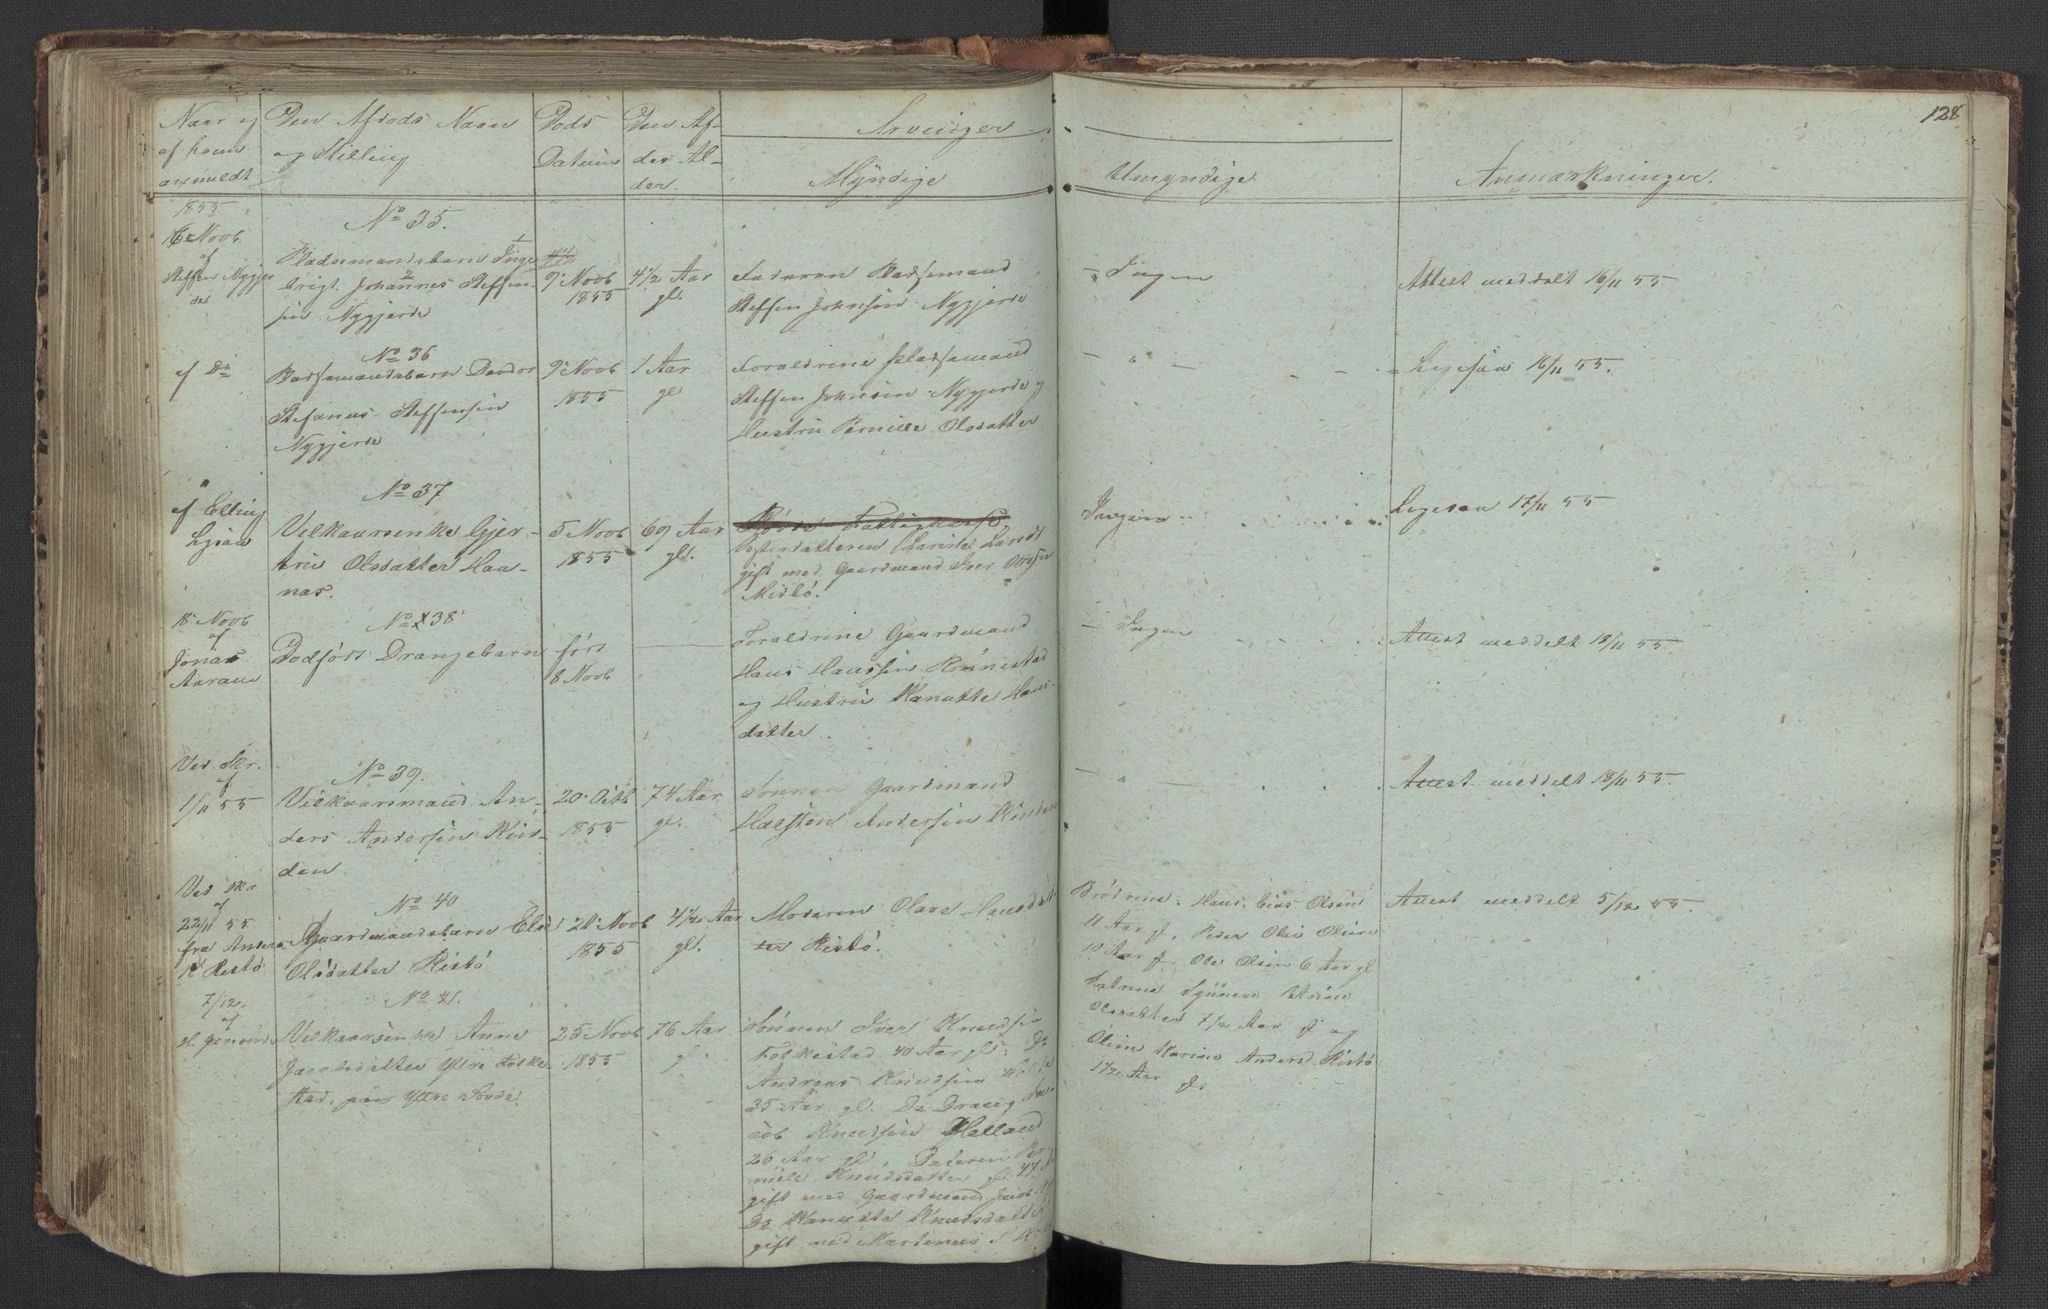 128
Naar og
af hvem
anmeldt
Den Afdøds Navn
og Stilling
Døds
Datum
Den Af-
dødes Al-
der.
Arvinger
Myndige
Umyndige
Anmærkninger.
1855
16 Novb
af
Steffen Nygjer
de
No 35.
Pladsemandsbarn Inge
brigt Johannes Steffen-
sen Nygjerde
9 Novb
1855
4 1/2 Aar
gl.
Faderen Pladsemand
Steffen Johnsen Nygjerde
Ingen
Attest meddelt 16/11 55
af Do
No 36
Pladsemandsbarn Deodor
Stefanus Steffensen
Nygjerde
9 Novb
1855
1 Aar
gl
Foraldrene Pladsemand
Steffen Johnsen Nygjerde og
Hustru Pernille Olsdatter
- " -
Ligesaa 16/11 55.
af Elling
Ligsaa
No 37
Vilkaarsenke Gjer-
tru Olsdatter Haa-
nas.
5 Novb
1855
69 Aar
gl.
Fattigkasse
Fosterdatteren Larsdt
gift med Gaardmand Iver
Ingen
Ligesaa 17/11 55
18 Novb
af
Jonas
Aarane
No 38
Dødfødt Drengebarn
født
8 Novb
Foraldrene Gaardmand
Hans Hanssen Rønnestad
og Hustru Kanutte Hans-
datter.
Ingen
Attest meddelt 18/11 55.
Ved Skr.
af
1/11 55
No 39.
Vilkaarsmand An-
ders Andersen
den
20 Octb
1855
74 Aar
gl.
Sønnen Gaardmand
Halsten Andersen
- " -
Attest meddelt 18/11 55.
Ved Skr
af
22/11 55
fra Anders
K Ristø
No 40
Gaardmandsbarn Else
Olsdatter Ristø
20 Novb
1855
4 1/2 Aar
gl.
Moderen Olave Hansdat-
ter Ristø.
Brødrene: Hans Elias Olsen
11 Aar gl, Peder Olai Olsen
10 Aar gl, Ole Olsen 6 Aar gl
Olsdatter 7 1/2 Aar gl og
Oline Karine Andersd Ristø
1 1/2 Aar gl.
Attest meddelt 5/12 55.
7/12
af
No 41.
Vilkaarsenke Anne
Jacobsdatter Ytre Folke
stad, paa Ytre
25 Novb
1855
76 Aar
gl.
Sønnen Iver Knudsen
Folkestad 40 Aar gl: Do
Andreas Knudsen
35 Aar gl. Do
cob Knudsen Helland
26 Aar gl, Datteren Per-
nille Knudsdatter gl 47
gift med Gaardmand Jacob
Do Kanutte Knudsdatter
gift med Martinus